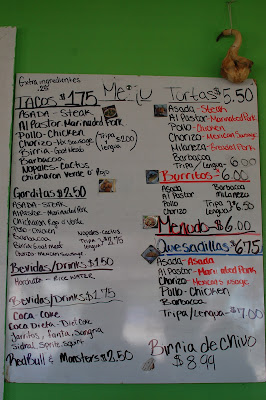 Extra ingredientes
.25¢
Menu
TACOS $1.75
ASADA - STEAK
Al Pastor - Marinated Pork
Pollo - Chicken
Chorizo - Mex Sausage
Birria - Goat Meat
(Tripa Lengua) $2.00
Barbacoa
Nopales - Cactus
Chicharon Verde o Rojo
Gorditas $2.50
ASADA - STEAK
Al Pastor - Marinated Pork
Chicharon Rojo o Verde
Pollo - Chicken
Nopales - cactus
Barbacoa
Tripa Lengua > $2.75
Birria Goat meat
Chorizo - Mexican Sausage
Bevidas/Drinks $1.50
Horchata - RICE WATER
Bevidas/Drinks $1.75
Coca Coke
Coca Dieta - Diet Coke
Jarritos, Fanta, Sangria
Sidral, Sprite, Squirt
Red Bull & Monsters $2.50
Turtas $5.50
Asada - Steak
Al Pastor - Marinated Pork
Pollo - Chicken
Chorizo - Mexican Sausage
Milaneza - Breaded Pork
Barbacoa
Tripa/Lengua - 6.00
Burritos - 6.00
Asada Barbacoa
Al Pastor Milaneza
Pollo Tripa
Chorizo Lengua > $6.50
Menudo - $6.00
Quesadillas $6.75
Asada - Asada
Al Pastor - Marinated Pork
Chorizo - Mexican Sausage
Pollo - Chicken
Barbacoa
Tripa/Lengua - $7.00
Birria de Chivo
$8.99